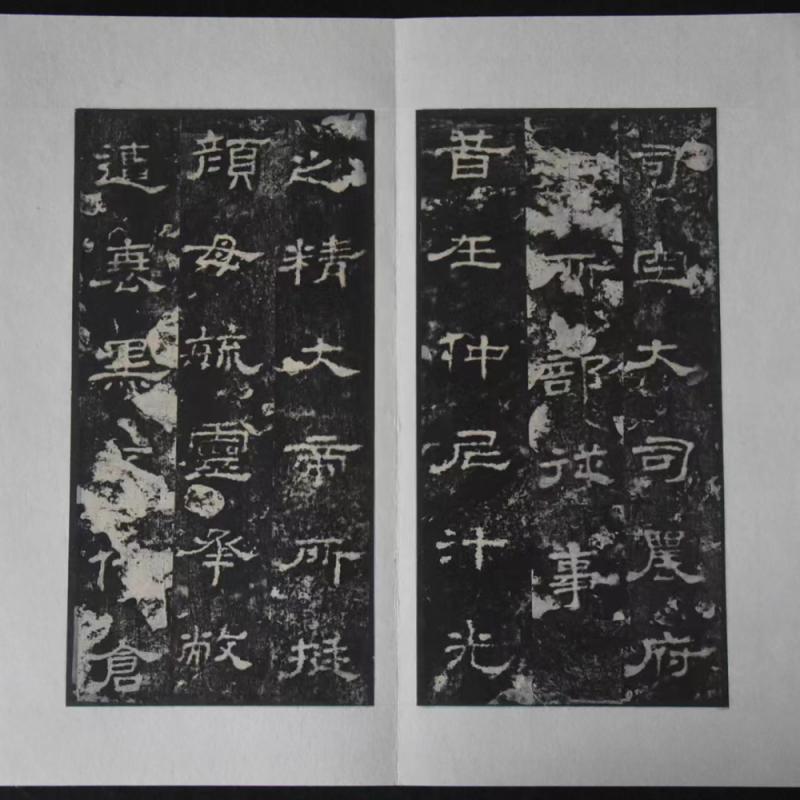 司空大司農府
治所部從事
昔在仲尼汁光
之精大帝所挺
顏母毓靈承敝
遭衰黑不代倉